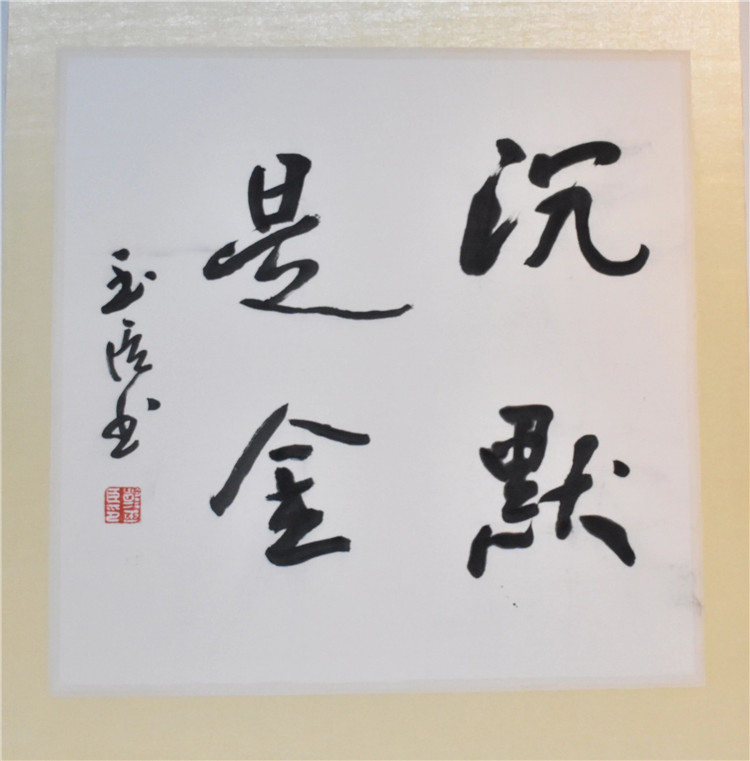 沉默
是金
玉信书